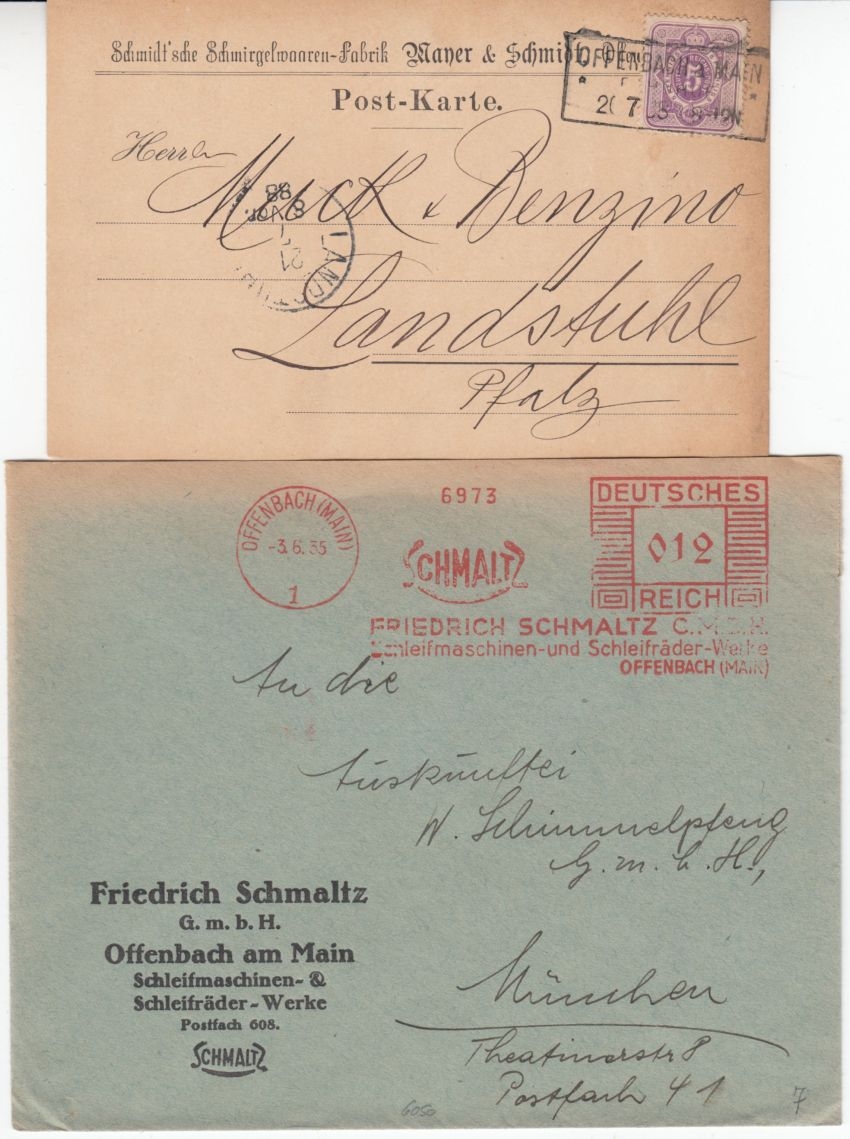 Schmidt'sche Schmirgelwaaren-Fabrik Mayer & Schmidt,
OFFENBACH a MAIN
7
8-12N
5
Post-Karte.
Herren
Muck & Benzino
88
8 Vor.
21
Landstuhl
Pfalz
OFFENBACH (MAIN)
-3.6.35
1
6973
SCHMALTZ
DEUTSCHES
012
REICH
FRIEDRICH SCHMALTZ G.M.B.H.
Schleifmaschinen-und Schleifräder-Werke
OFFENBACH (MAIN)
An die
Auskunftei
W. Schimmelpfeng
G. m. b. H.,
München
Theatinerstr 8
Postfach 41
Friedrich Schmaltz
G. m. b. H.
Offenbach am Main
Schleifmaschinen- &
Schleifräder-Werke
Postfach 608.
SCHMALTZ
6050
7